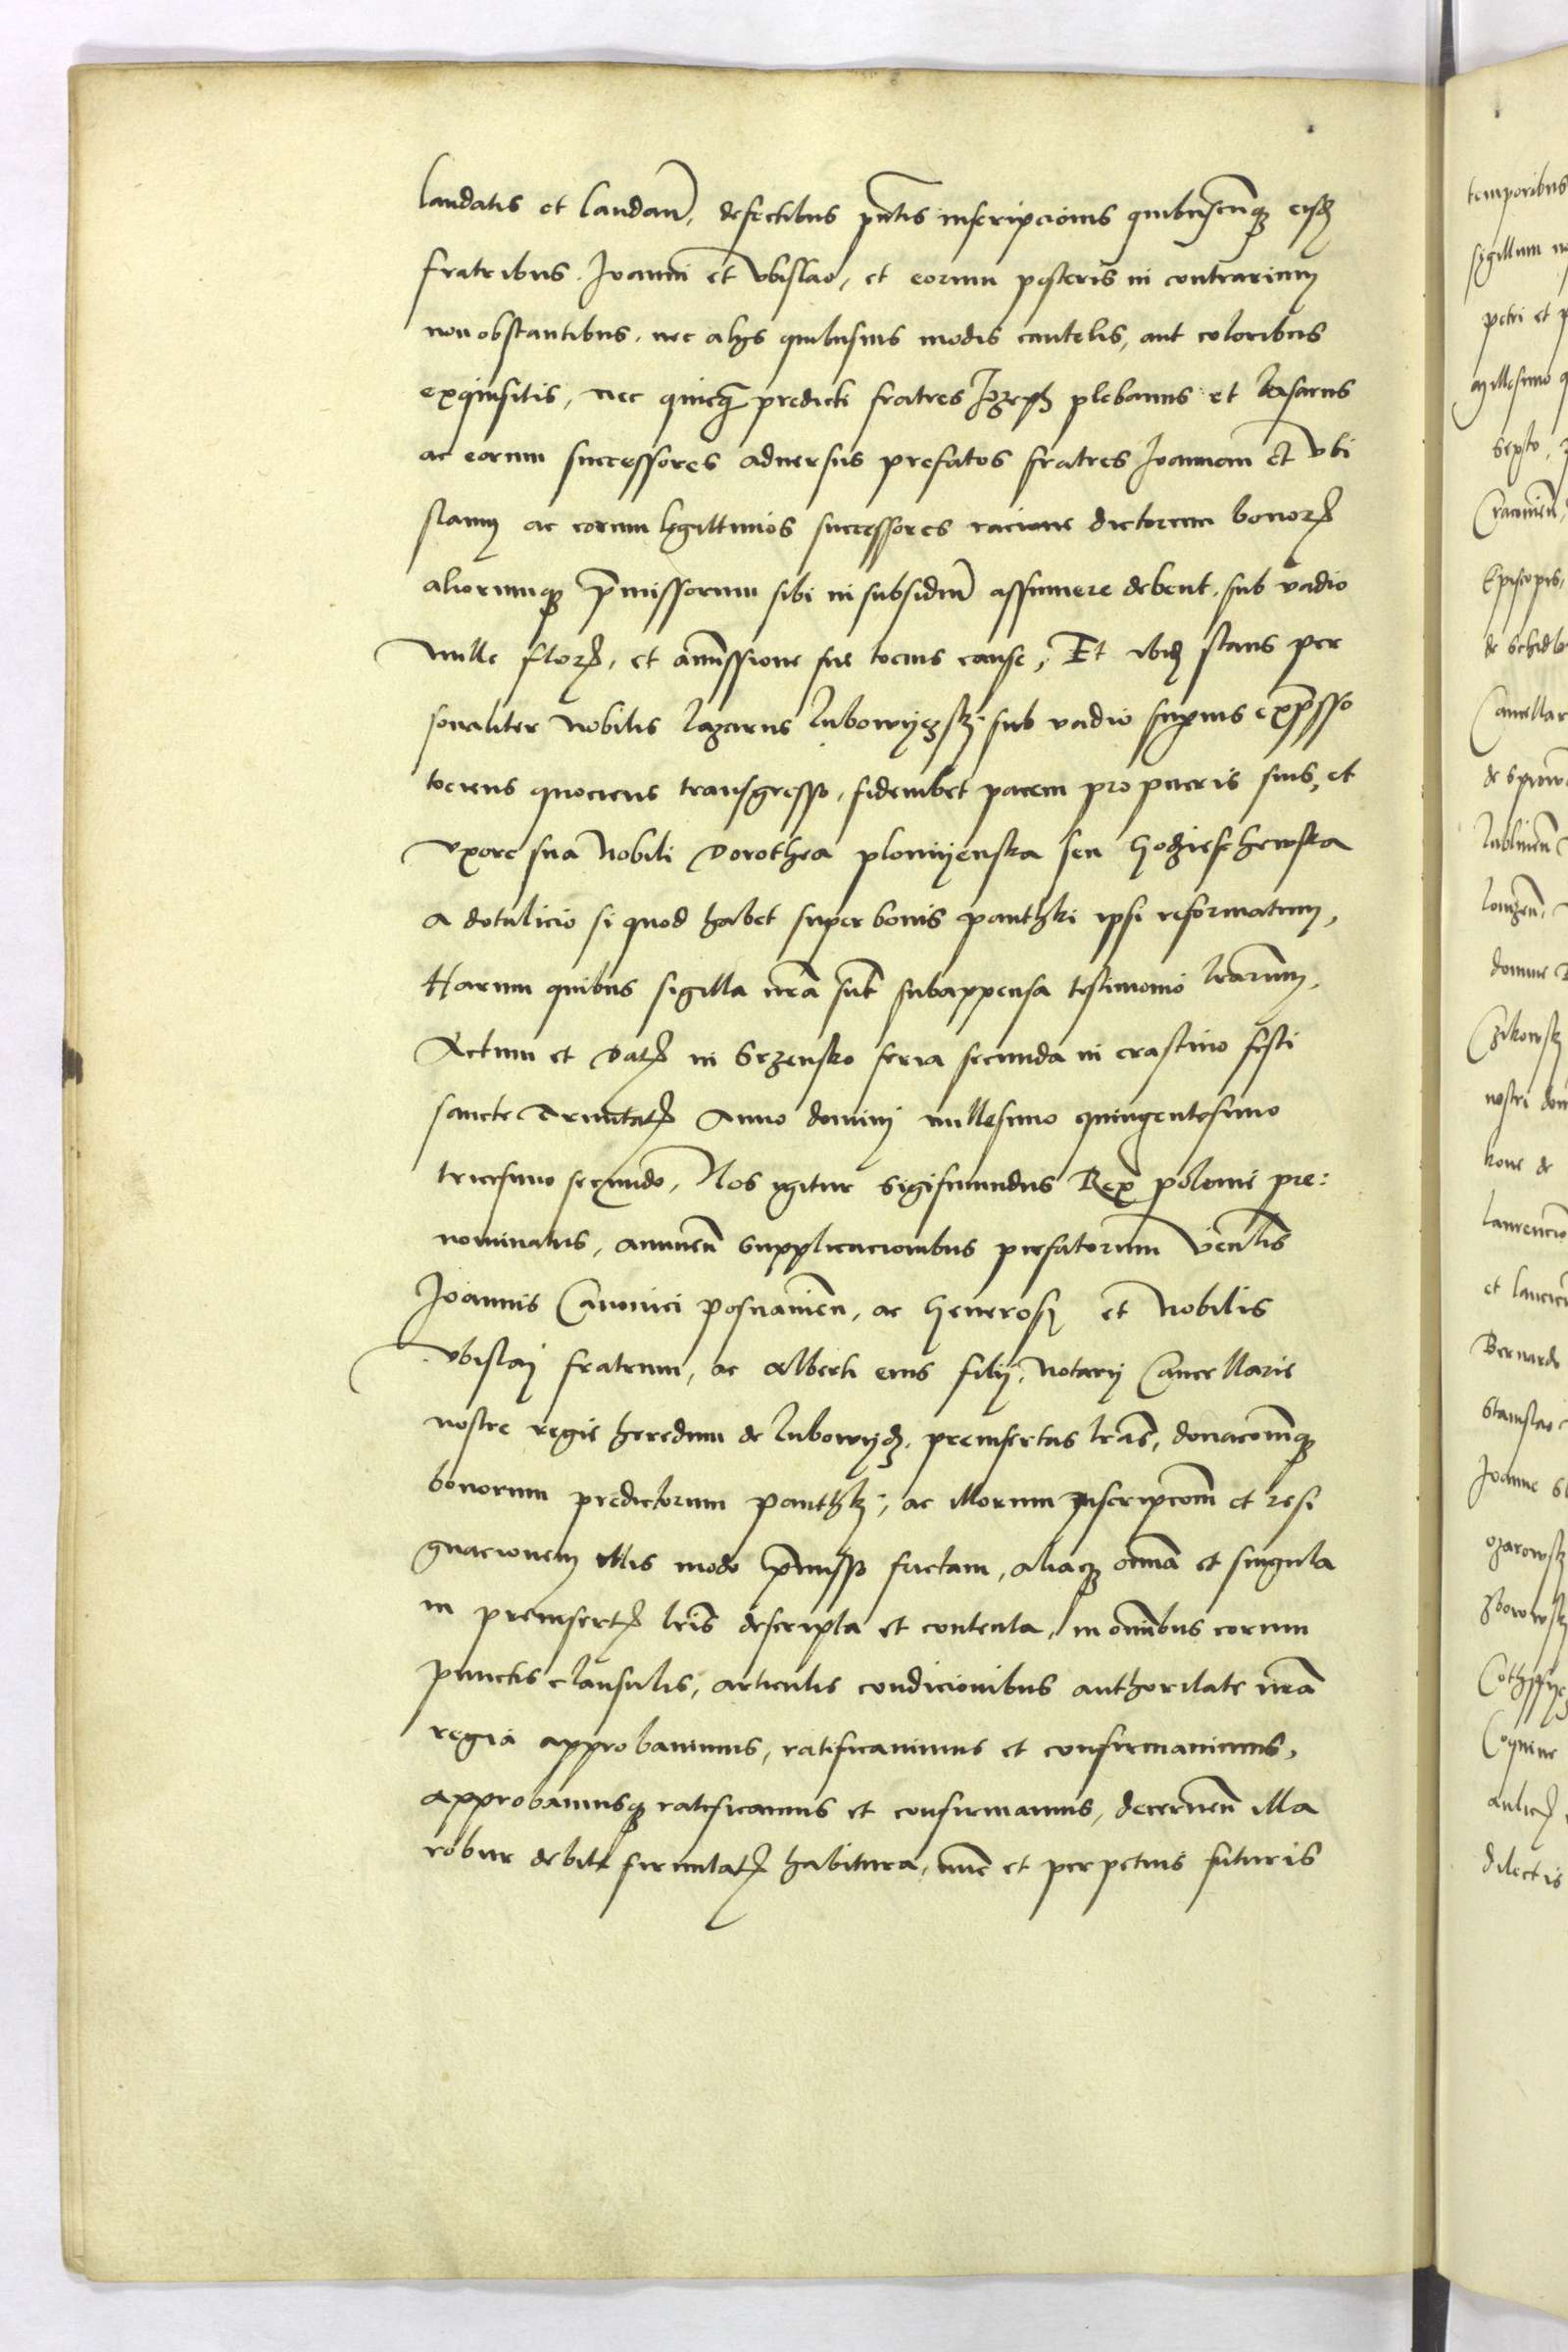 laudatis et laudan̄, defectibus pn̄tis inscripcionis quibuscūqꝫ eisdꝫ
fratribus Joanni et Vbislao, et eorum posteris in contrarium
non obstantibus, nec alys quibusuis modis cautelis, aut coloribus
exquisitis, nec quicqꝫ predicti fratres Jozeph plebanus et Lasarus
ac eorum successores aduersus prefatos fratres Joannem et Vbi
slaum ac eorum legittimos successores racione dictorum bonorꝝ
aliorumqꝫ p̄missorum sibi in subsidiū assumere debent, sub vadio
mille florꝝ, et amissione sue tocius cause, Et ibidꝫ stans per
sonaliter Nobilis Lazarus Lubowyczskj sub vadio supius exp̄sso
tociens quociens transgresso, fideiubet pacem pro pueris suis, et
vxore sua Nobili Dorothea plomyenska seu
a dotalicio si quod habet super bonis panthki ipsi reformatum,
Harum quibus sigilla nr̄a sūt subappensa testimonio lrārum,
Actum et Datꝫ in Srzensko feria secunda in crastino festi
sancte Trinitatꝭ Anno dominj millesimo quingentesimo
tricesimo secundo, Nos igitur Sigismundus Rex polonie pre:
nominatus, annuen̄ supplicacionibus prefatorum Ven̄lis
Joannis Canonici Posnanien̄, ac Generosj et Nobilis
Vbislaj fratrum, ac Alberti eius filij, Notarij Cancellarie
nostre regie heredum de Lubowydꝫ, preinsertas lrās, donacōnēqꝫ
bonorum predictorum Panthkj, ac illorum Inscripcōnē et resi
gnacionem illis modo p̄misso factam, aliaqꝫ om̄ia et singula
in preinsertꝭ lrīs descripta et contenta, in om̄ibus eorum
punctis clausulis, articulis condicionibus authoritate nr̄a
regia approbauimus, ratificauimus et confirmauimus,
approbamusqꝫ ratificamus et confirmamus, decernen̄ illa
robur debite firmitatꝭ habitura, nūc et perpetuis futuris
temporibus
sigillum
petri et
millesimo
Sexto,
Cracouien̄
Episcopis,
Cancellar
Lublinen̄
domino
Czikowskj
nostri
et
Bernardo
Stanislao
Joanne
ozarowskj
dilectis